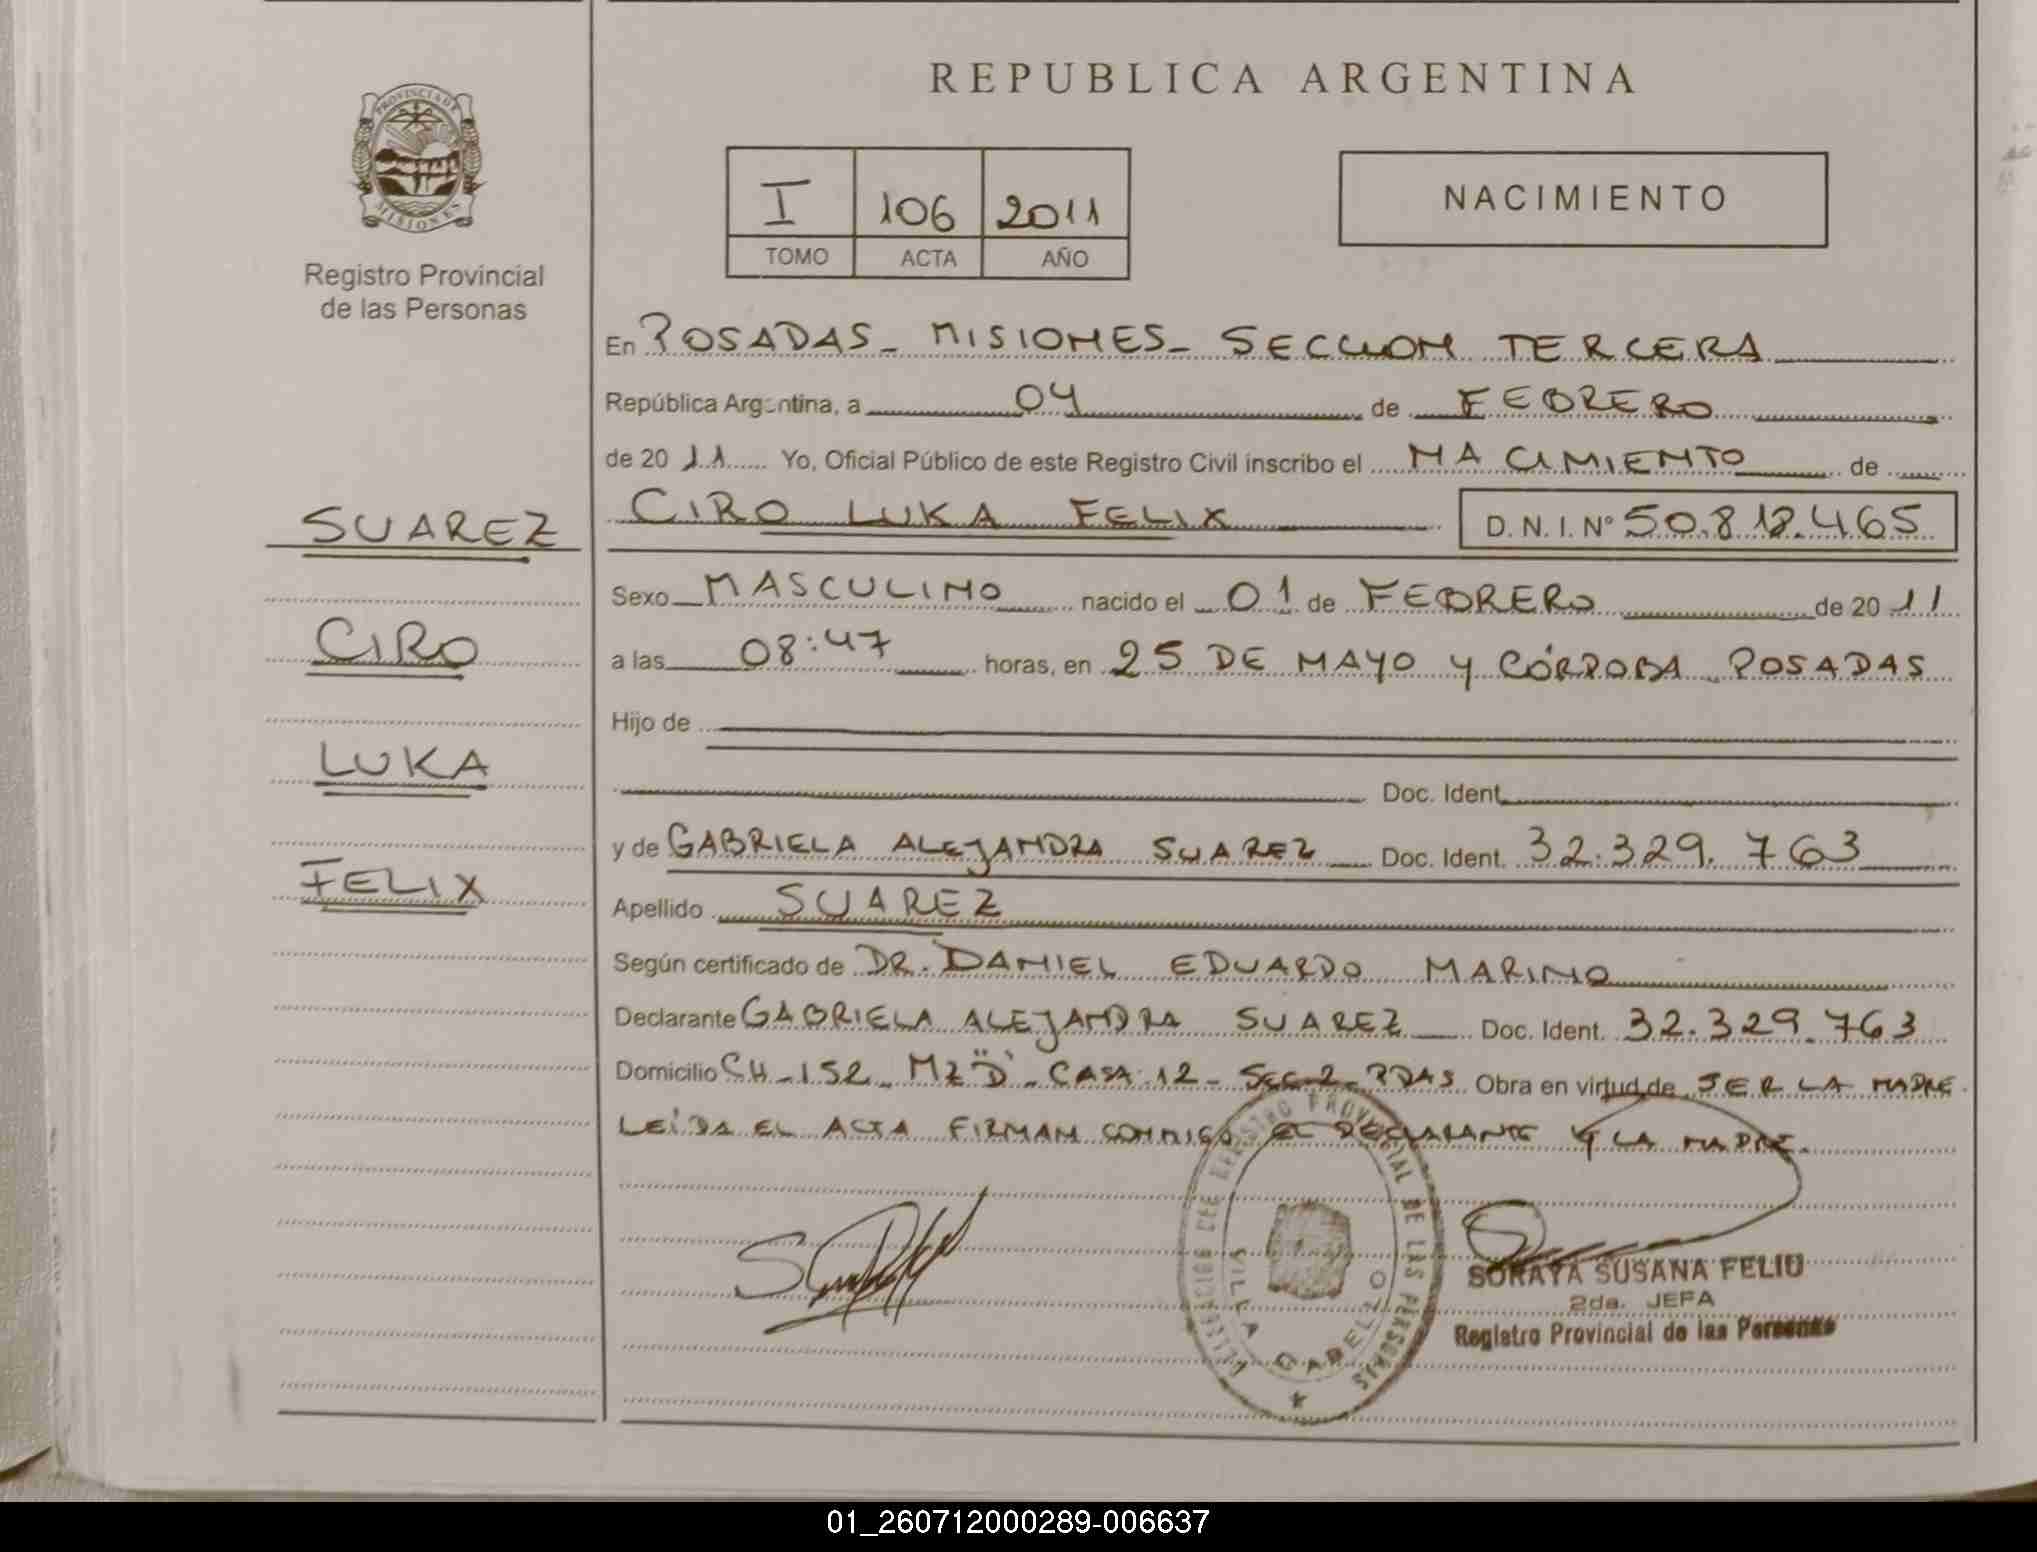 PROVINCIA DE
MISIONES
Registro Provincial
de las Personas
SUAREZ
CIRO
LUKA
FELIX
REPUBLICA ARGENTINA
I 106 2011
TOMO ACTA AÑO
NACIMIENTO
En POSADAS - MISIONES - SECCION TERCERA
República Argentina, a 04 de FEBRERO
de 20 11 Yo, Oficial Público de este Registro Civil inscribo el NACIMIENTO de
CIRO LUKA FELIX D.N.I. Nº 50.812.465
Sexo MASCULINO nacido el 01 de FEBRERO de 20 11
a las 08:47 horas, en 25 DE MAYO Y CÓRDOBA - POSADAS
Hijo de
Doc. Ident.
y de GABRIELA ALEJANDRA SUAREZ Doc. Ident. 32.329.763
Apellido SUAREZ
Según certificado de DR. DANIEL EDUARDO MARINO
Declarante GABRIELA ALEJANDRA SUAREZ Doc. Ident. 32.329.763
Domicilio CH - 152 - MZ "D" - CASA 12 - SEC 2 - PDAS Obra en virtud de SER LA MADRE.
LEÍDA EL ACTA FIRMAN CONMIGO EL DECLARANTE Y LA MADRE.
REGISTRO PROVINCIAL DE LAS PERSONAS
VILLA CABELLO
SORAYA SUSANA FELIU
2da. JEFA
Registro Provincial de las Personas
01_260712000289-006637